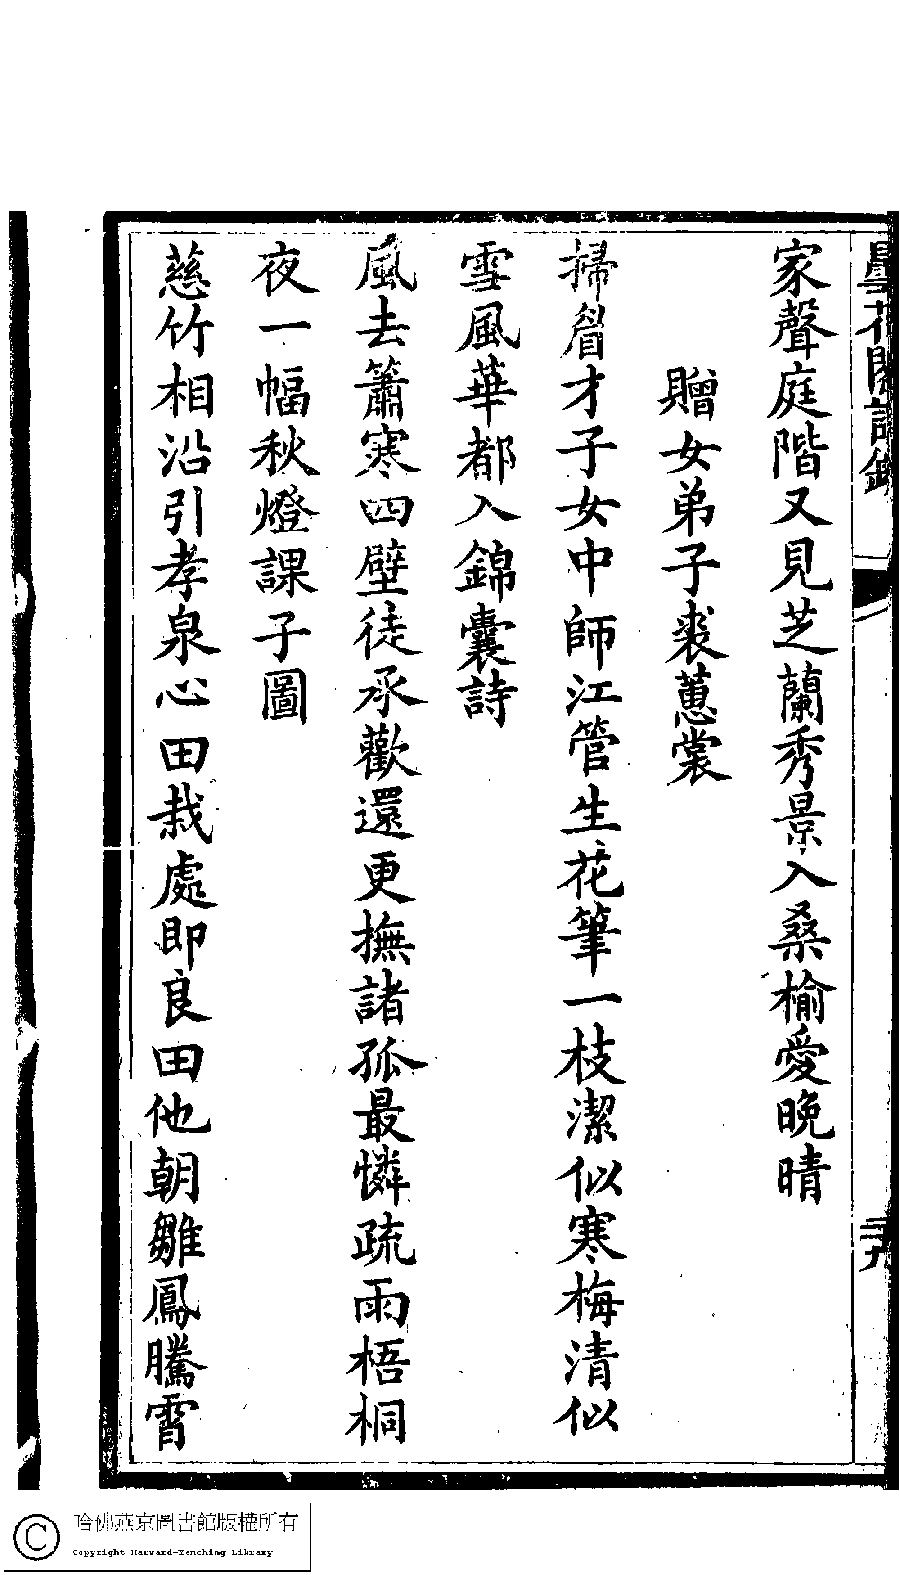 曇花閣詩鈔
二十九
家聲庭階又見芝蘭秀景入桑榆愛晚晴
贈女弟子裘蕙裳
掃眉才子女中師江管生花筆一枝潔似寒梅清似
雪風華都入錦囊詩
風去簫寒四壁徒承歡還更撫諸孤最憐疏雨梧桐
夜一幅秋燈課子圖
慈竹相沿引孝泉心田栽處即良田他朝雛鳳騰霄
哈佛燕京圖書館版權所有
Copyright Harvard-Yenching Library